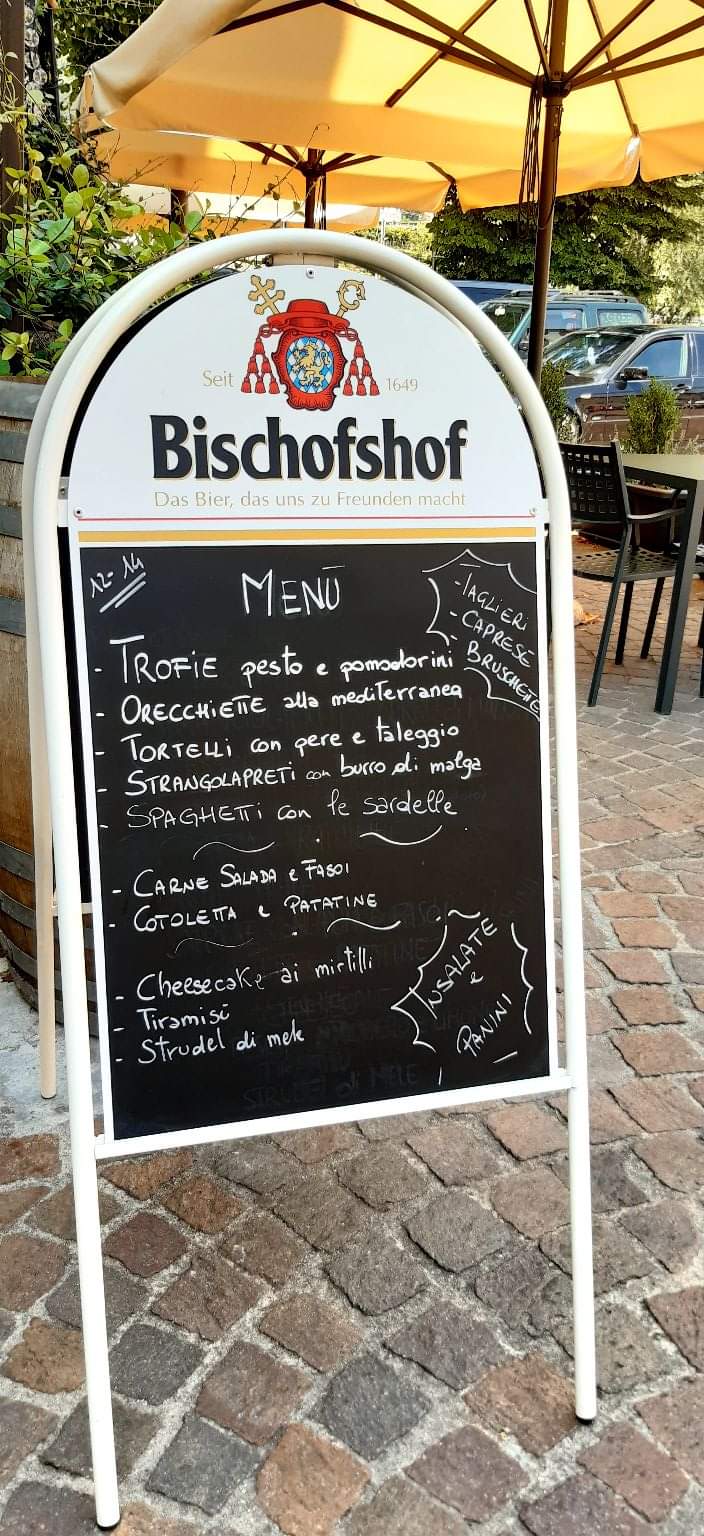 Seit 1649
Bischofshof
Das Bier, das uns zu Freunden macht
12-14
MENÙ
- TAGLIERI
- CAPRESE
BRUSCHETTE
- TROFIE pesto e pomodorini
- ORECCHIETTE alla mediTerranea
- TORTELLI con pere e taleggio
- STRANGOLAPRETI con burro di malga
- SPAGHETTI con le sardelle
- CARNE SALADA e FASOI
- COTOLETTA e PATATINE
- Cheesecake ai mirtilli
- Tiramisù
- Strudel di mele
INSALATE
e
PANINI